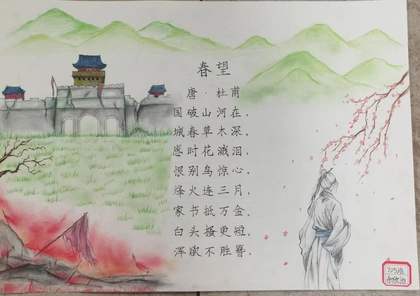 春望
唐·杜甫
国破山河在，
城春草木深。
感时花溅泪，
恨别鸟惊心。
烽火连三月，
家书抵万金。
白头搔更短，
浑欲不胜簪。